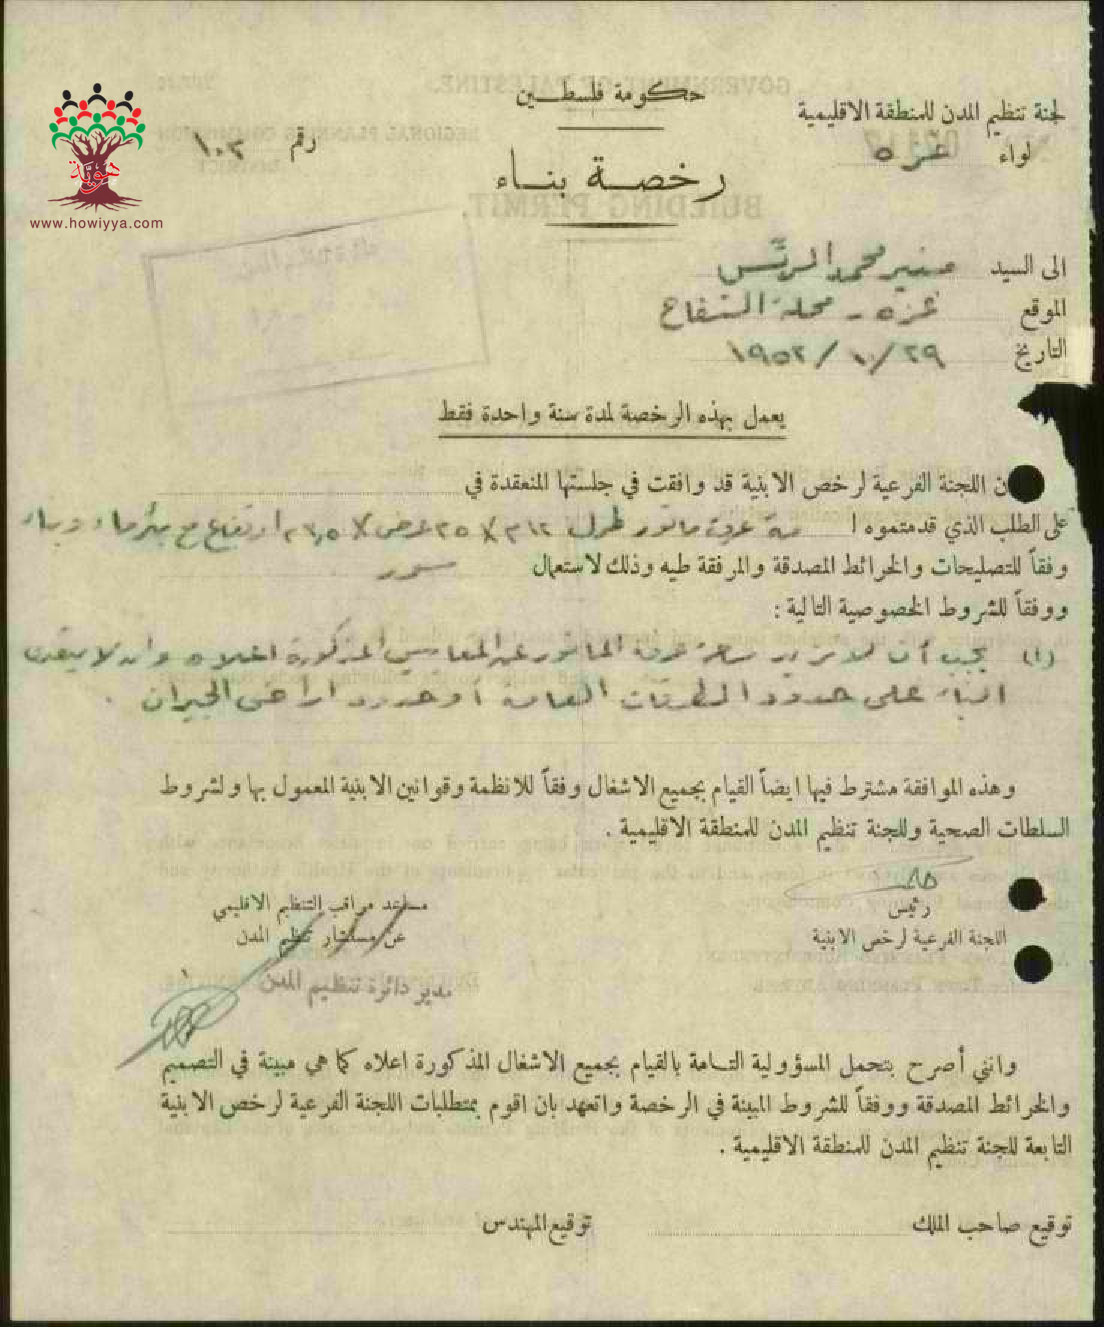 حكومة فلسطين
لجنة تنظيم المدن للمنطقة الاقليمية
لواء غزه
رقم ١٠٢
رخصة بناء
هوية
www.howiyya.com
الى السيد منير محمد الريّس
الموقع غزه - محلة التفاح
التاريخ ٢٩/١٠/١٩٥٢
يعمل بهذه الرخصة لمدة سنة واحدة فقط
ن اللجنة الفرعية لرخص الابنية قد وافقت في جلستها المنعقدة في
على الطلب الذي قدمتموه ا غرفة ماتور طول عرض ارتفاع مع بئر ماء
وفقاً للتصليحات والخرائط المصدقة والمرفقة طيه وذلك لاستعمال
ووفقاً للشروط الخصوصية التالية :
(١) يجب أن لا تزيد غرفة الماتور عن المقاييس المذكورة اعلاه وان لا
البناء على حدود الطرقات العامه او حدود اراضي الجيران .
وهذه الموافقة مشترط فيها ايضاً القيام بجميع الاشغال وفقاً للانظمة وقوانين الابنية المعمول بها ولشروط
السلطات الصحية وللجنة تنظيم المدن للمنطقة الاقليمية .
رئيس
اللجنة الفرعية لرخص الابنية
مساعد مراقب التنظيم الاقليمي
عن مستشار تنظيم المدن
مدير دائرة تنظيم المدن
وانني أصرح بتحمل المسؤولية التامة بالقيام بجميع الاشغال المذكورة اعلاه كما هي مبينة في التصميم
والخرائط المصدقة ووفقاً للشروط المبينة في الرخصة واتعهد بان اقوم بمتطلبات اللجنة الفرعية لرخص الابنية
التابعة للجنة تنظيم المدن للمنطقة الاقليمية .
توقيع صاحب الملك
توقيع المهندس